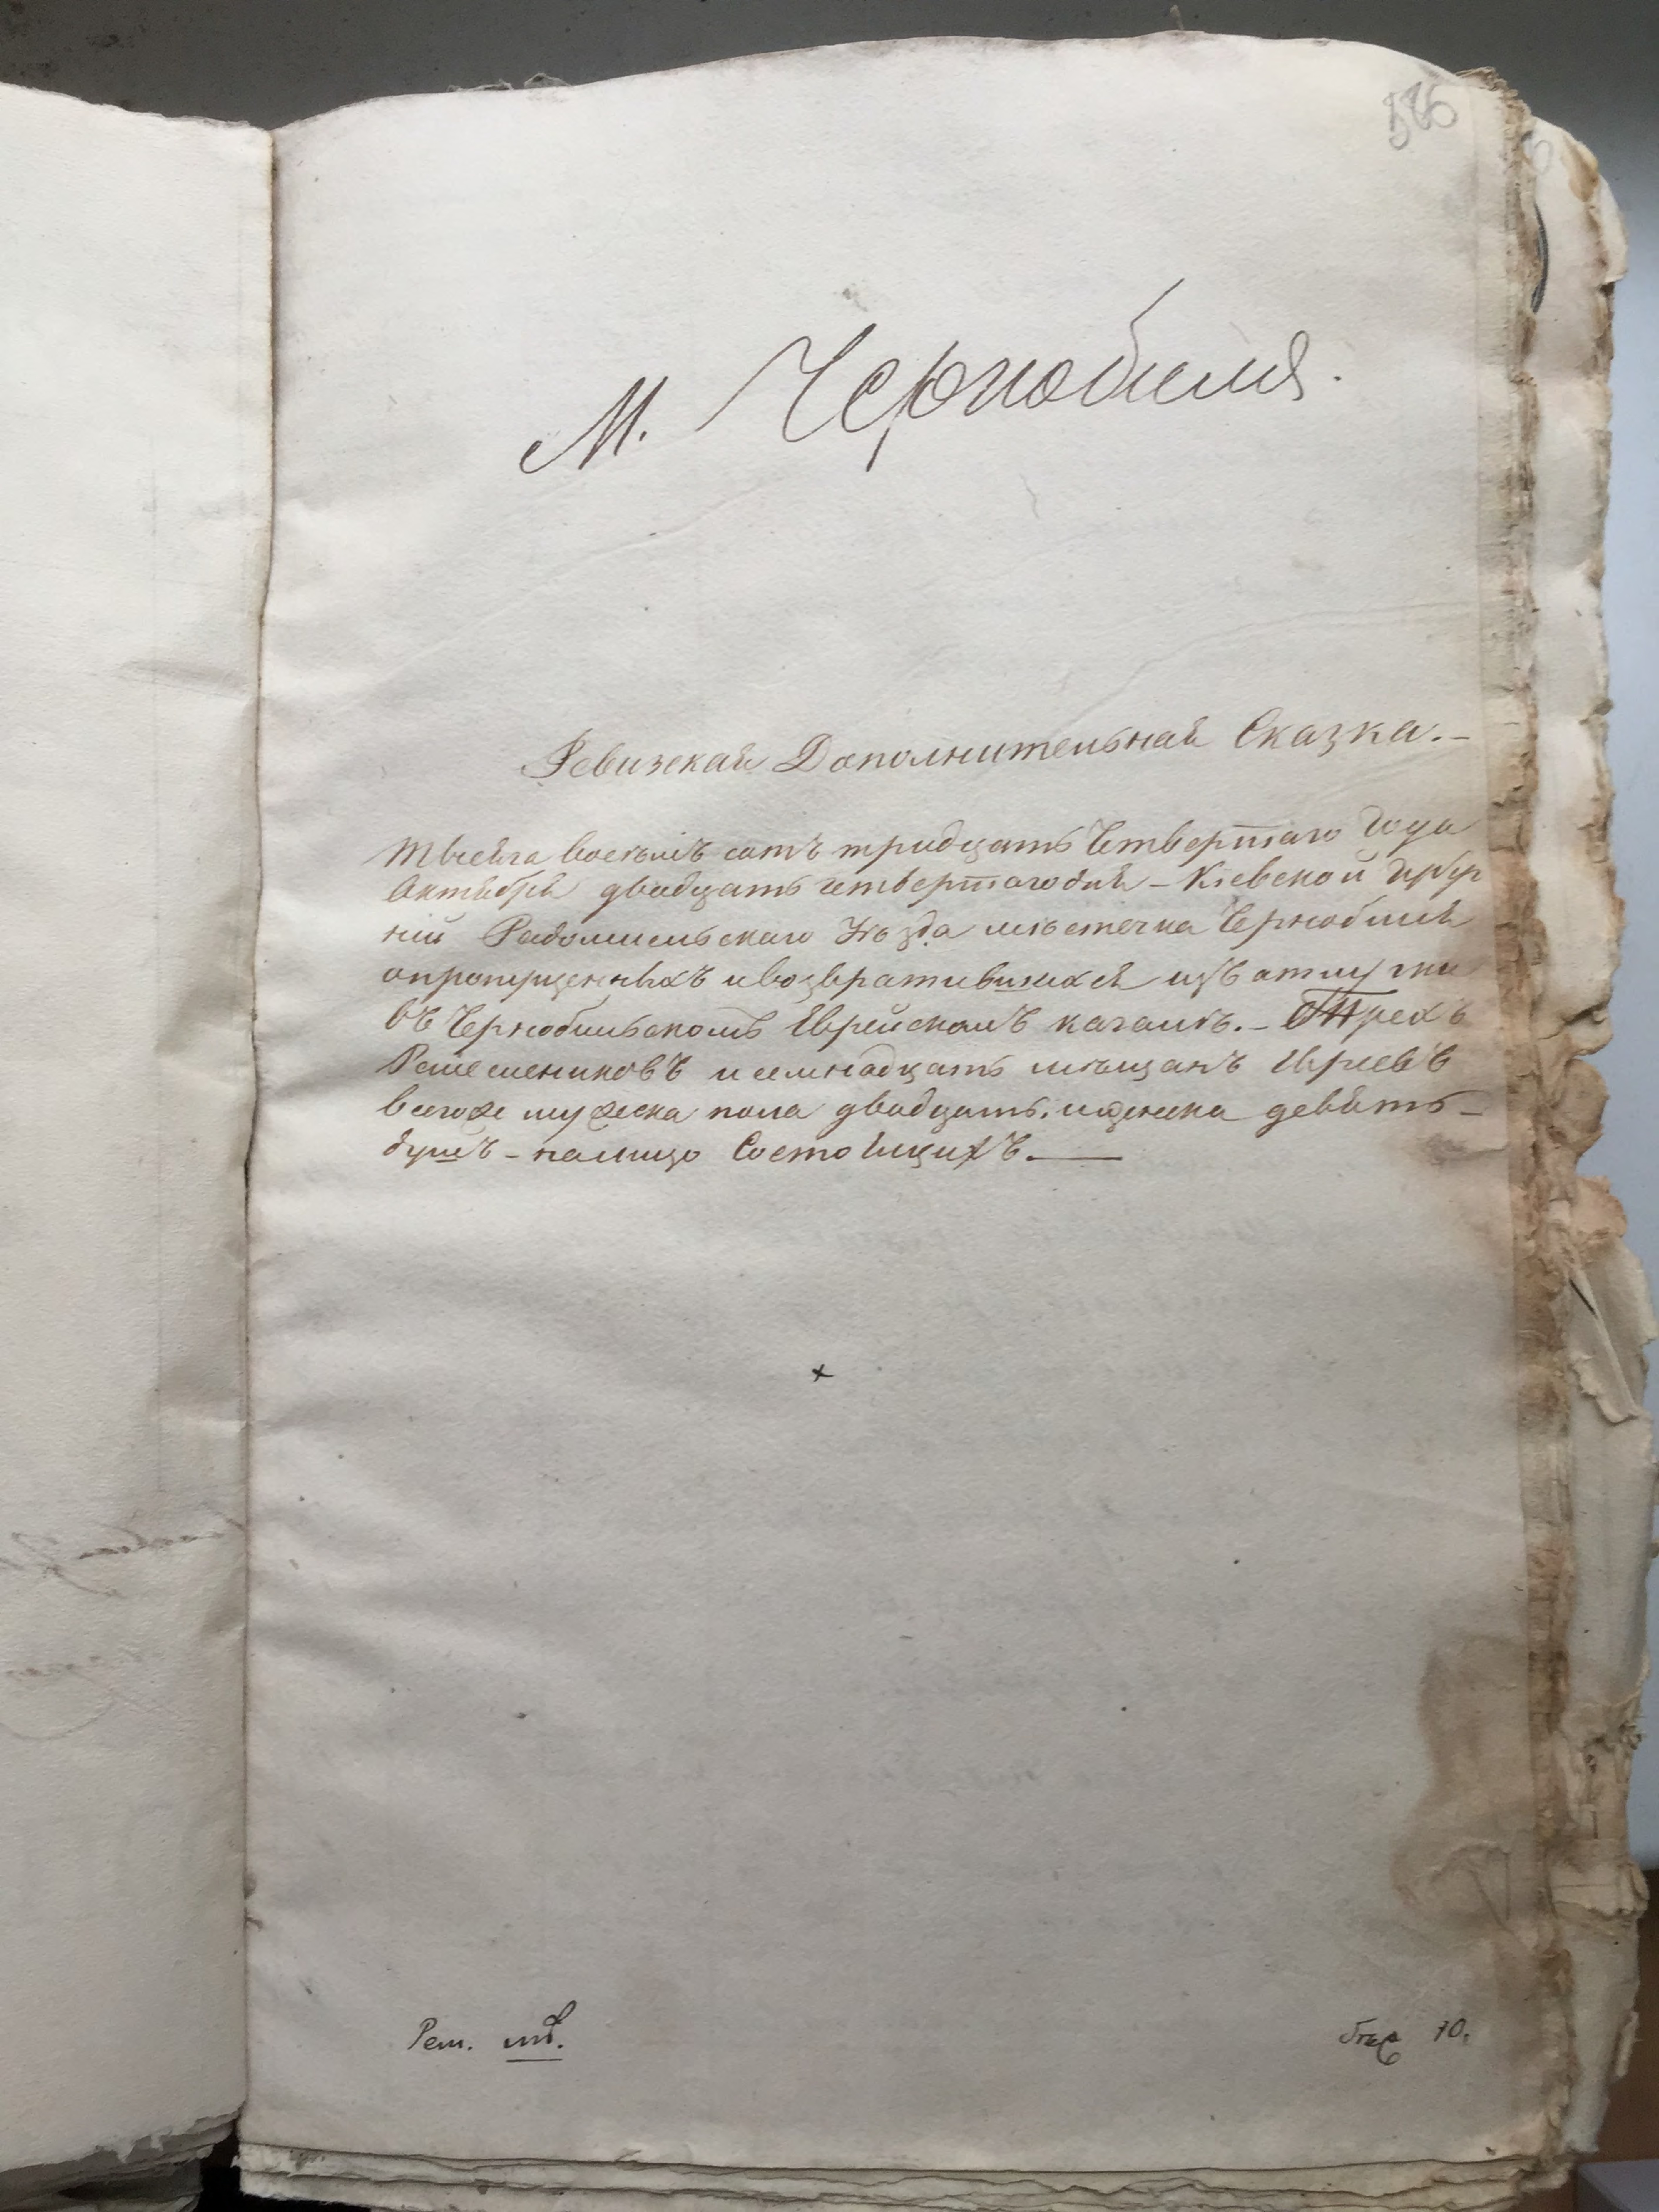 586
М. Чернобиля.
Ревизская Дополнительная Сказка.–
тысяча восемъ сотъ тридцать Четвертаго Года
Октября двадцать четвертаго дня – Кіевской Губер
ніи Радомисльскаго Уѣзда мѣстечка Чернобиля
опропущенныхъ ивозвратившихся изъ отлучки
въ Чернобильскомъ Еврейскомъ кагалѣ. – Трехъ
Ремесниковъ и семнадцать мѣщанъ Евреевъ
всегоже мужеска пола двадцать, иженска девять –
душъ – налицо Состоящихъ. —
10.